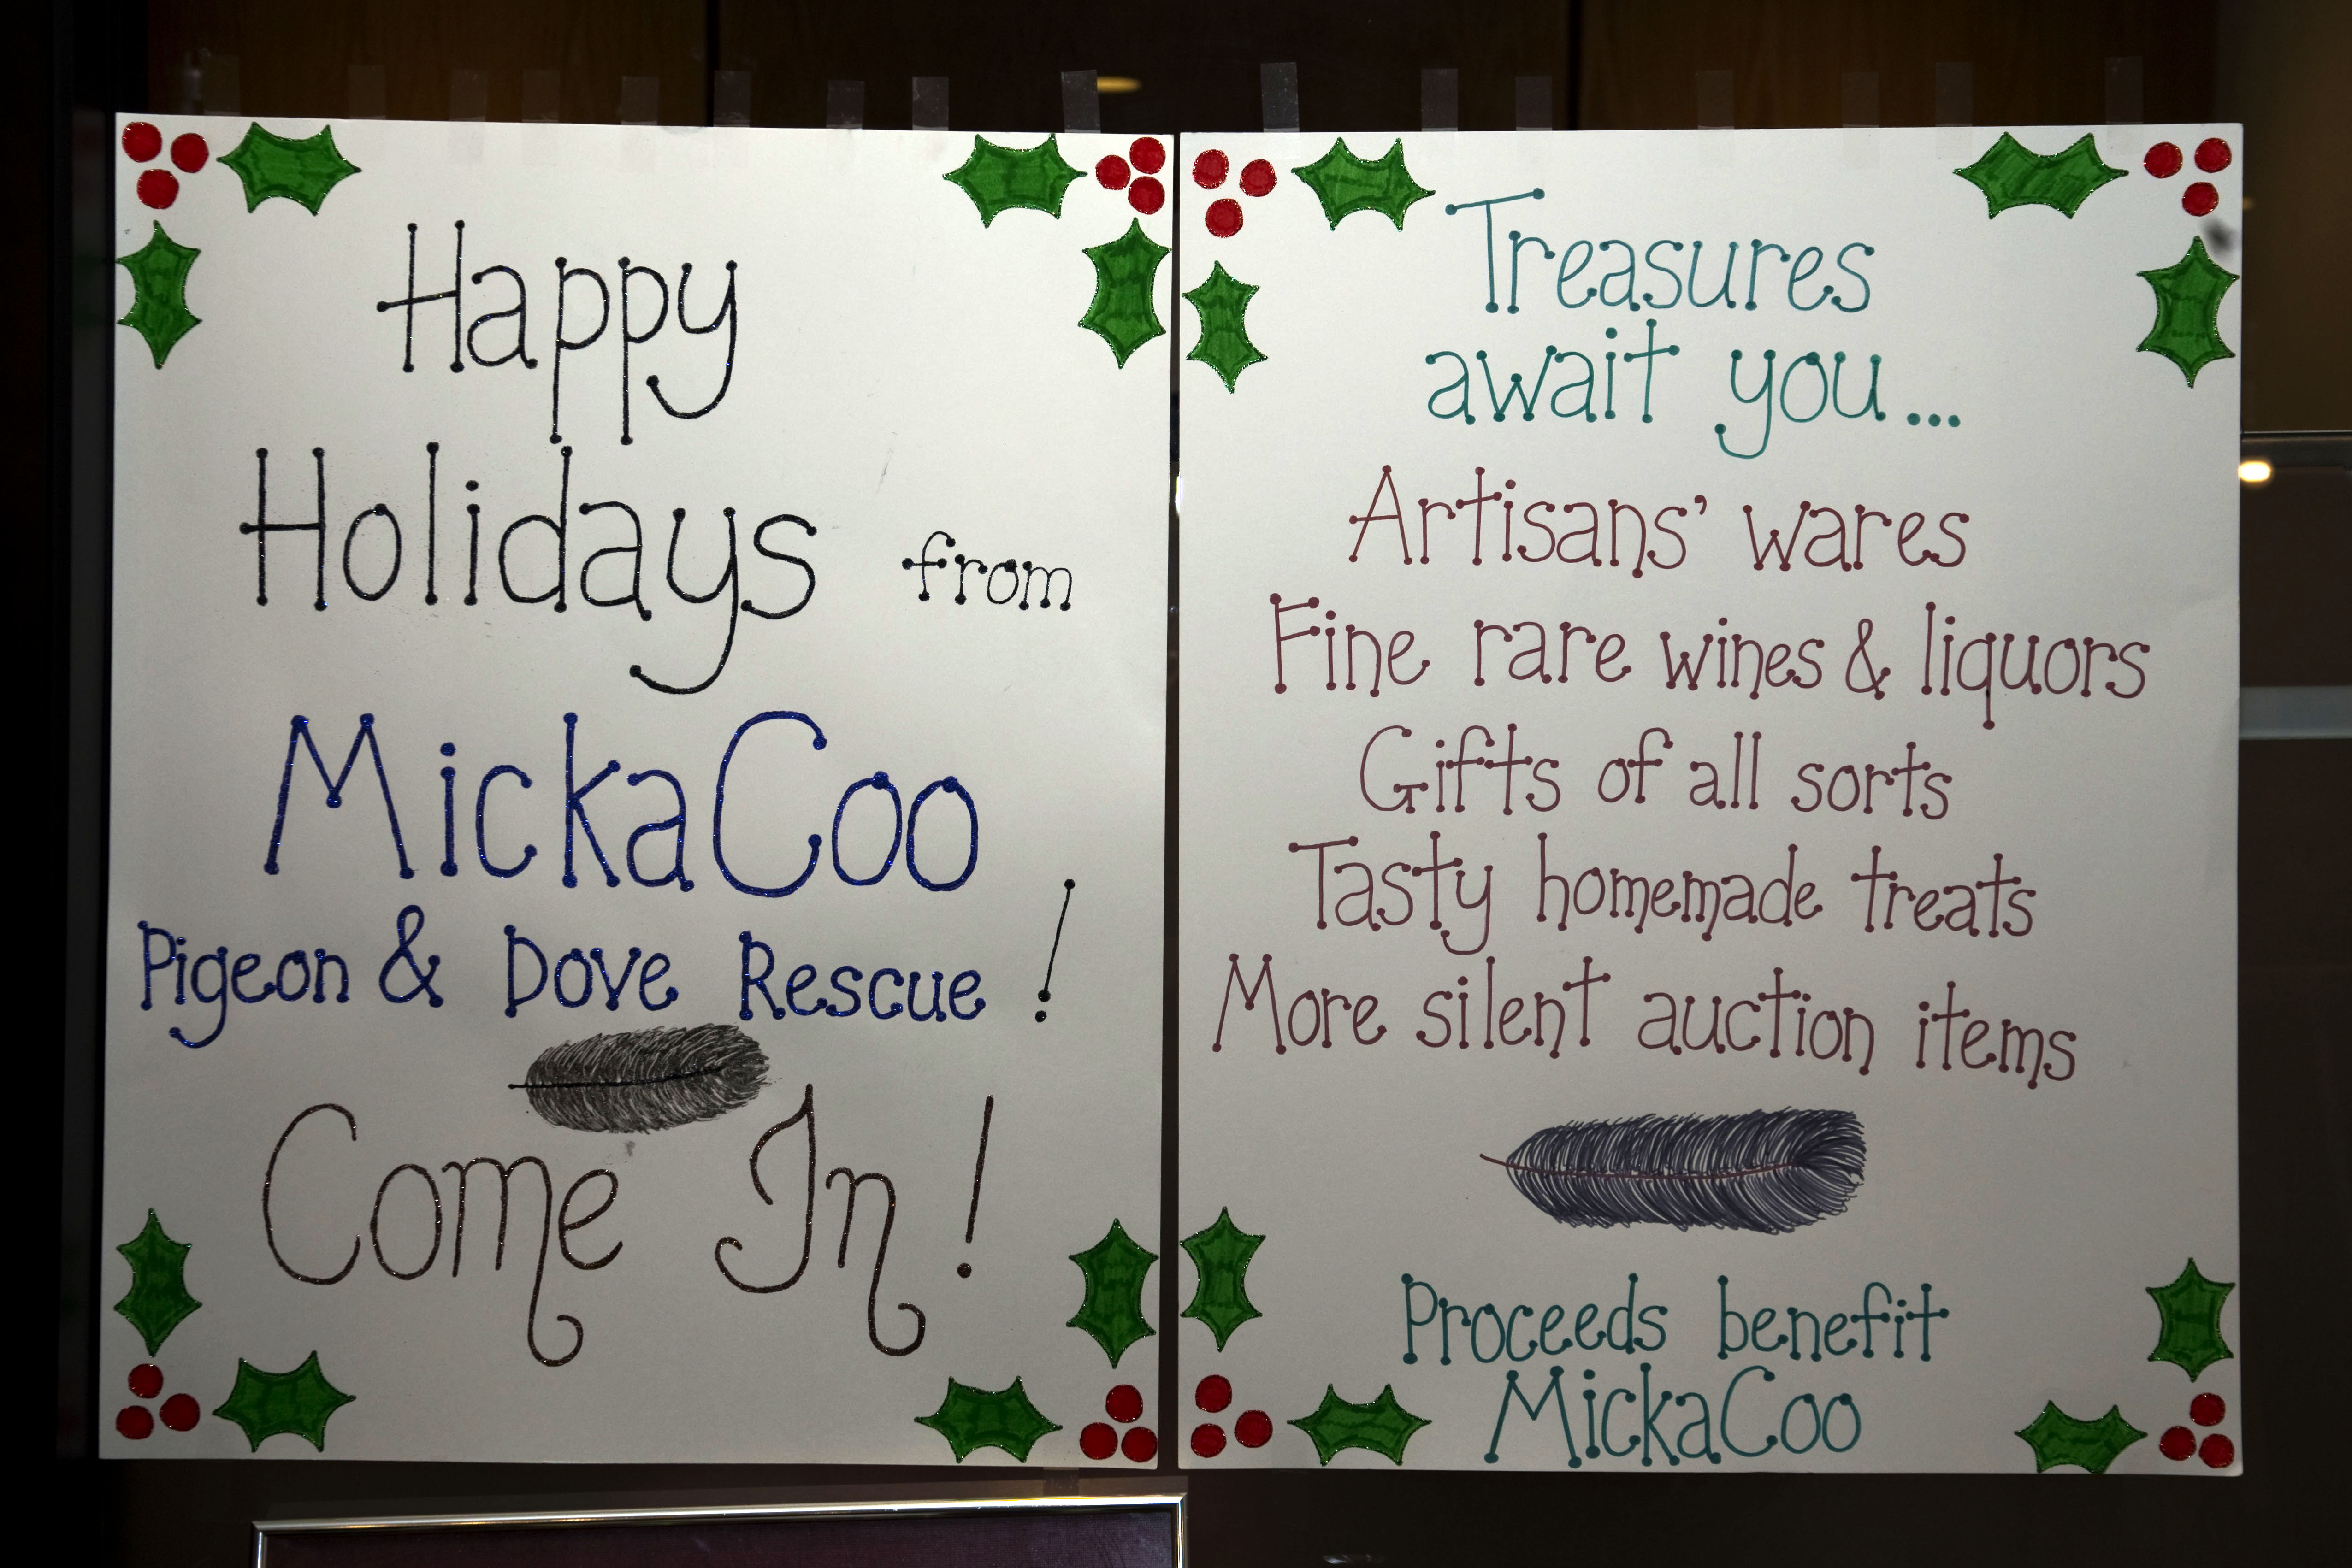 Happy
Holidays from
MickaCoo
Pigeon & Dove Rescue!
Come In!
Treasures
await you...
Artisans' wares
Fine rare wines & liquors
Gifts of all sorts
Tasty homemade treats
More silent auction items
Proceeds benefit
MickaCoo